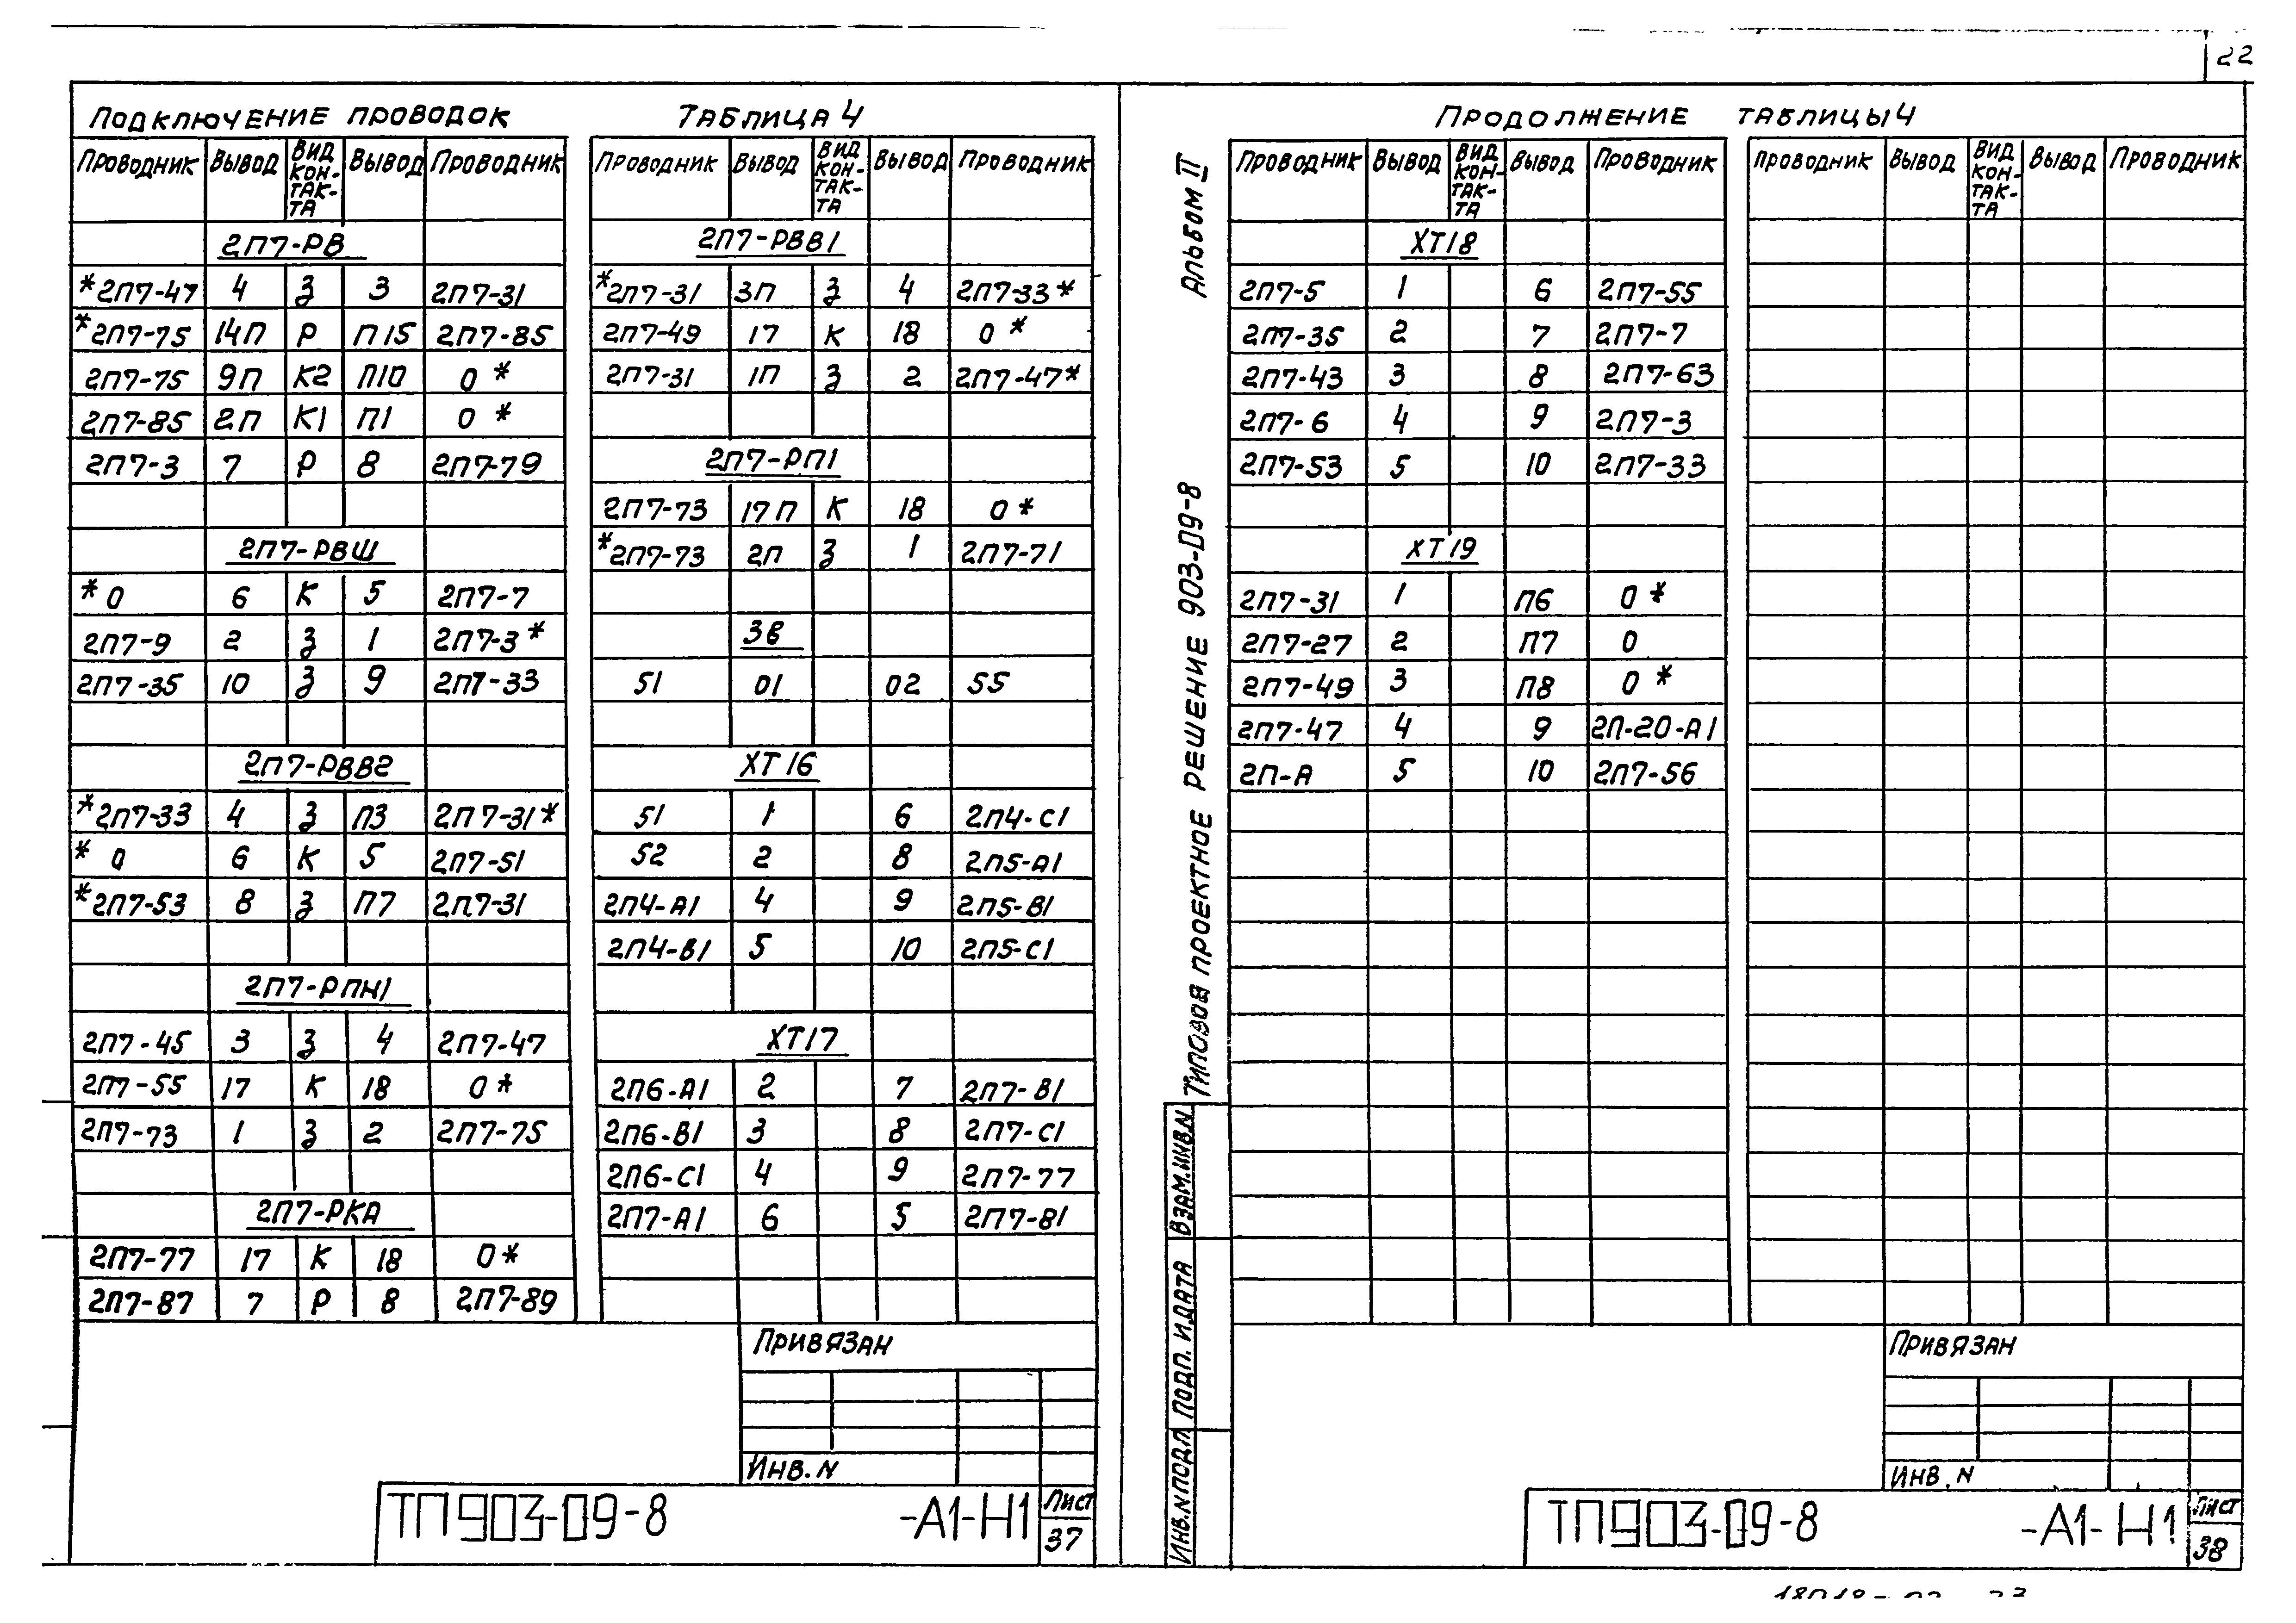 22
Подключение проводок Таблица 4
Проводник Вывод Вид контакта Вывод Проводник
2П7-РВ
*2П7-47 4 З 3 2П7-31
*2П7-75 14П Р П15 2П7-85
2П7-75 9П К2 П10 0 *
2П7-85 2П К1 П1 0 *
2П7-3 7 Р 8 2П7-79
2П7-РВШ
* 0 6 К 5 2П7-7
2П7-9 2 З 1 2П7-3*
2П7-35 10 З 9 2П7-33
2П7-РВВ2
*2П7-33 4 З П3 2П7-31*
* 0 6 К 5 2П7-51
*2П7-53 8 З П7 2П7-31
2П7-РПН1
2П7-45 3 З 4 2П7-47
2П7-55 17 К 18 0*
2П7-73 1 З 2 2П7-75
2П7-РКА
2П7-77 17 К 18 0*
2П7-87 7 Р 8 2П7-89
Проводник Вывод Вид контакта Вывод Проводник
2П7-РВВ1
*2П7-31 3П З 4 2П7-33*
2П7-49 17 К 18 0 *
2П7-31 1П З 2 2П7-47*
2П7-РП1
2П7-73 17П К 18 0*
*2П7-73 2П З 1 2П7-71
3в
51 01 02 55
ХТ16
51 1 6 2П4-С1
52 2 8 2П5-А1
2П4-А1 4 9 2П5-В1
2П4-В1 5 10 2П5-С1
ХТ17
2П6-А1 2 7 2П7-В1
2П6-В1 3 8 2П7-С1
2П6-С1 4 9 2П7-77
2П7-А1 6 5 2П7-В1
Привязан
Инв. N
ТП903-09-8 -А1-Н1
Лист
37
Альбом II
Типовое проектное решение 903-09-8
Взам.инв.N
Подп. и дата
Инв.N подл
Продолжение таблицы 4
Проводник Вывод Вид контакта Вывод Проводник
ХТ18
2П7-5 1 6 2П7-55
2П7-35 2 7 2П7-7
2П7-43 3 8 2П7-63
2П7-6 4 9 2П7-3
2П7-53 5 10 2П7-33
ХТ19
2П7-31 1 П6 0 *
2П7-27 2 П7 0
2П7-49 3 П8 0 *
2П7-47 4 9 2П-20-А1
2П-А 5 10 2П7-56
Проводник Вывод Вид контакта Вывод Проводник
Привязан
Инв. N
ТП903-09-8 -А1-Н1
Лист
38